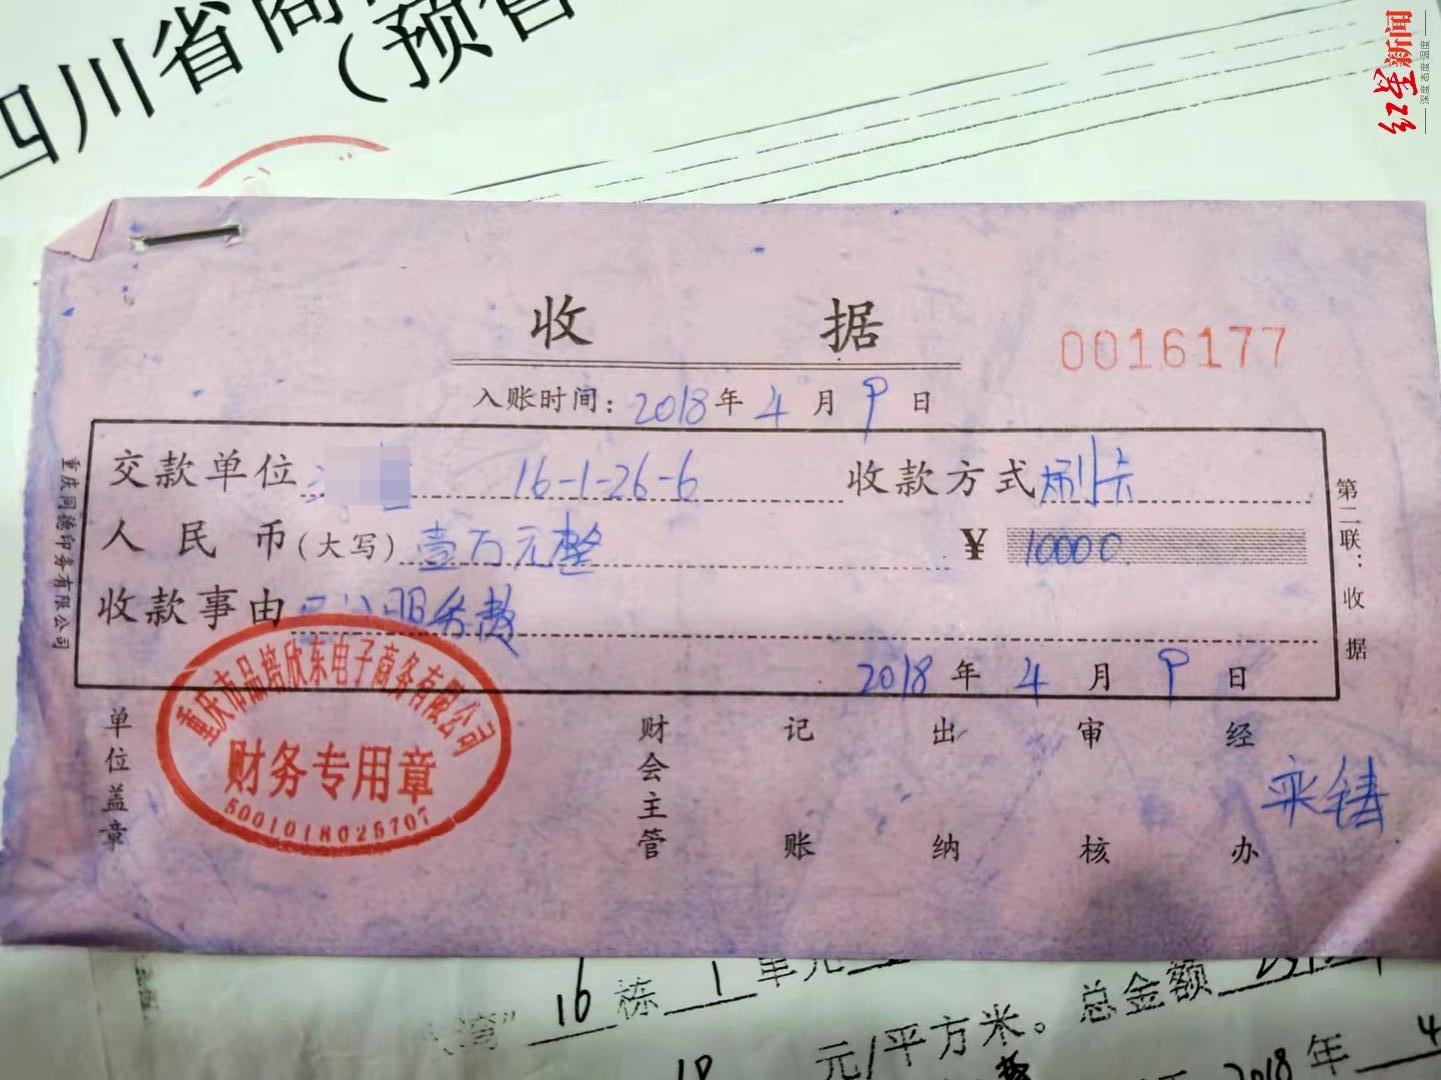 红星新闻
深度 态度 温度
四川省商
(预售
收据
0016177
入账时间：2018年4月9日
交款单位 16-1-26-6 收款方式 刷卡
人民币(大写) 壹万元整 ¥ 10000
收款事由 服务费
2018年4月9日
重庆同德印务有限公司
第二联：收据
单位盖章
重庆市品培欣东电子商务有限公司
财务专用章
5001018025707
财会主管 记账 出纳 审核 经办
湾" 16栋1单元
元/平方米。总金额
2018年4